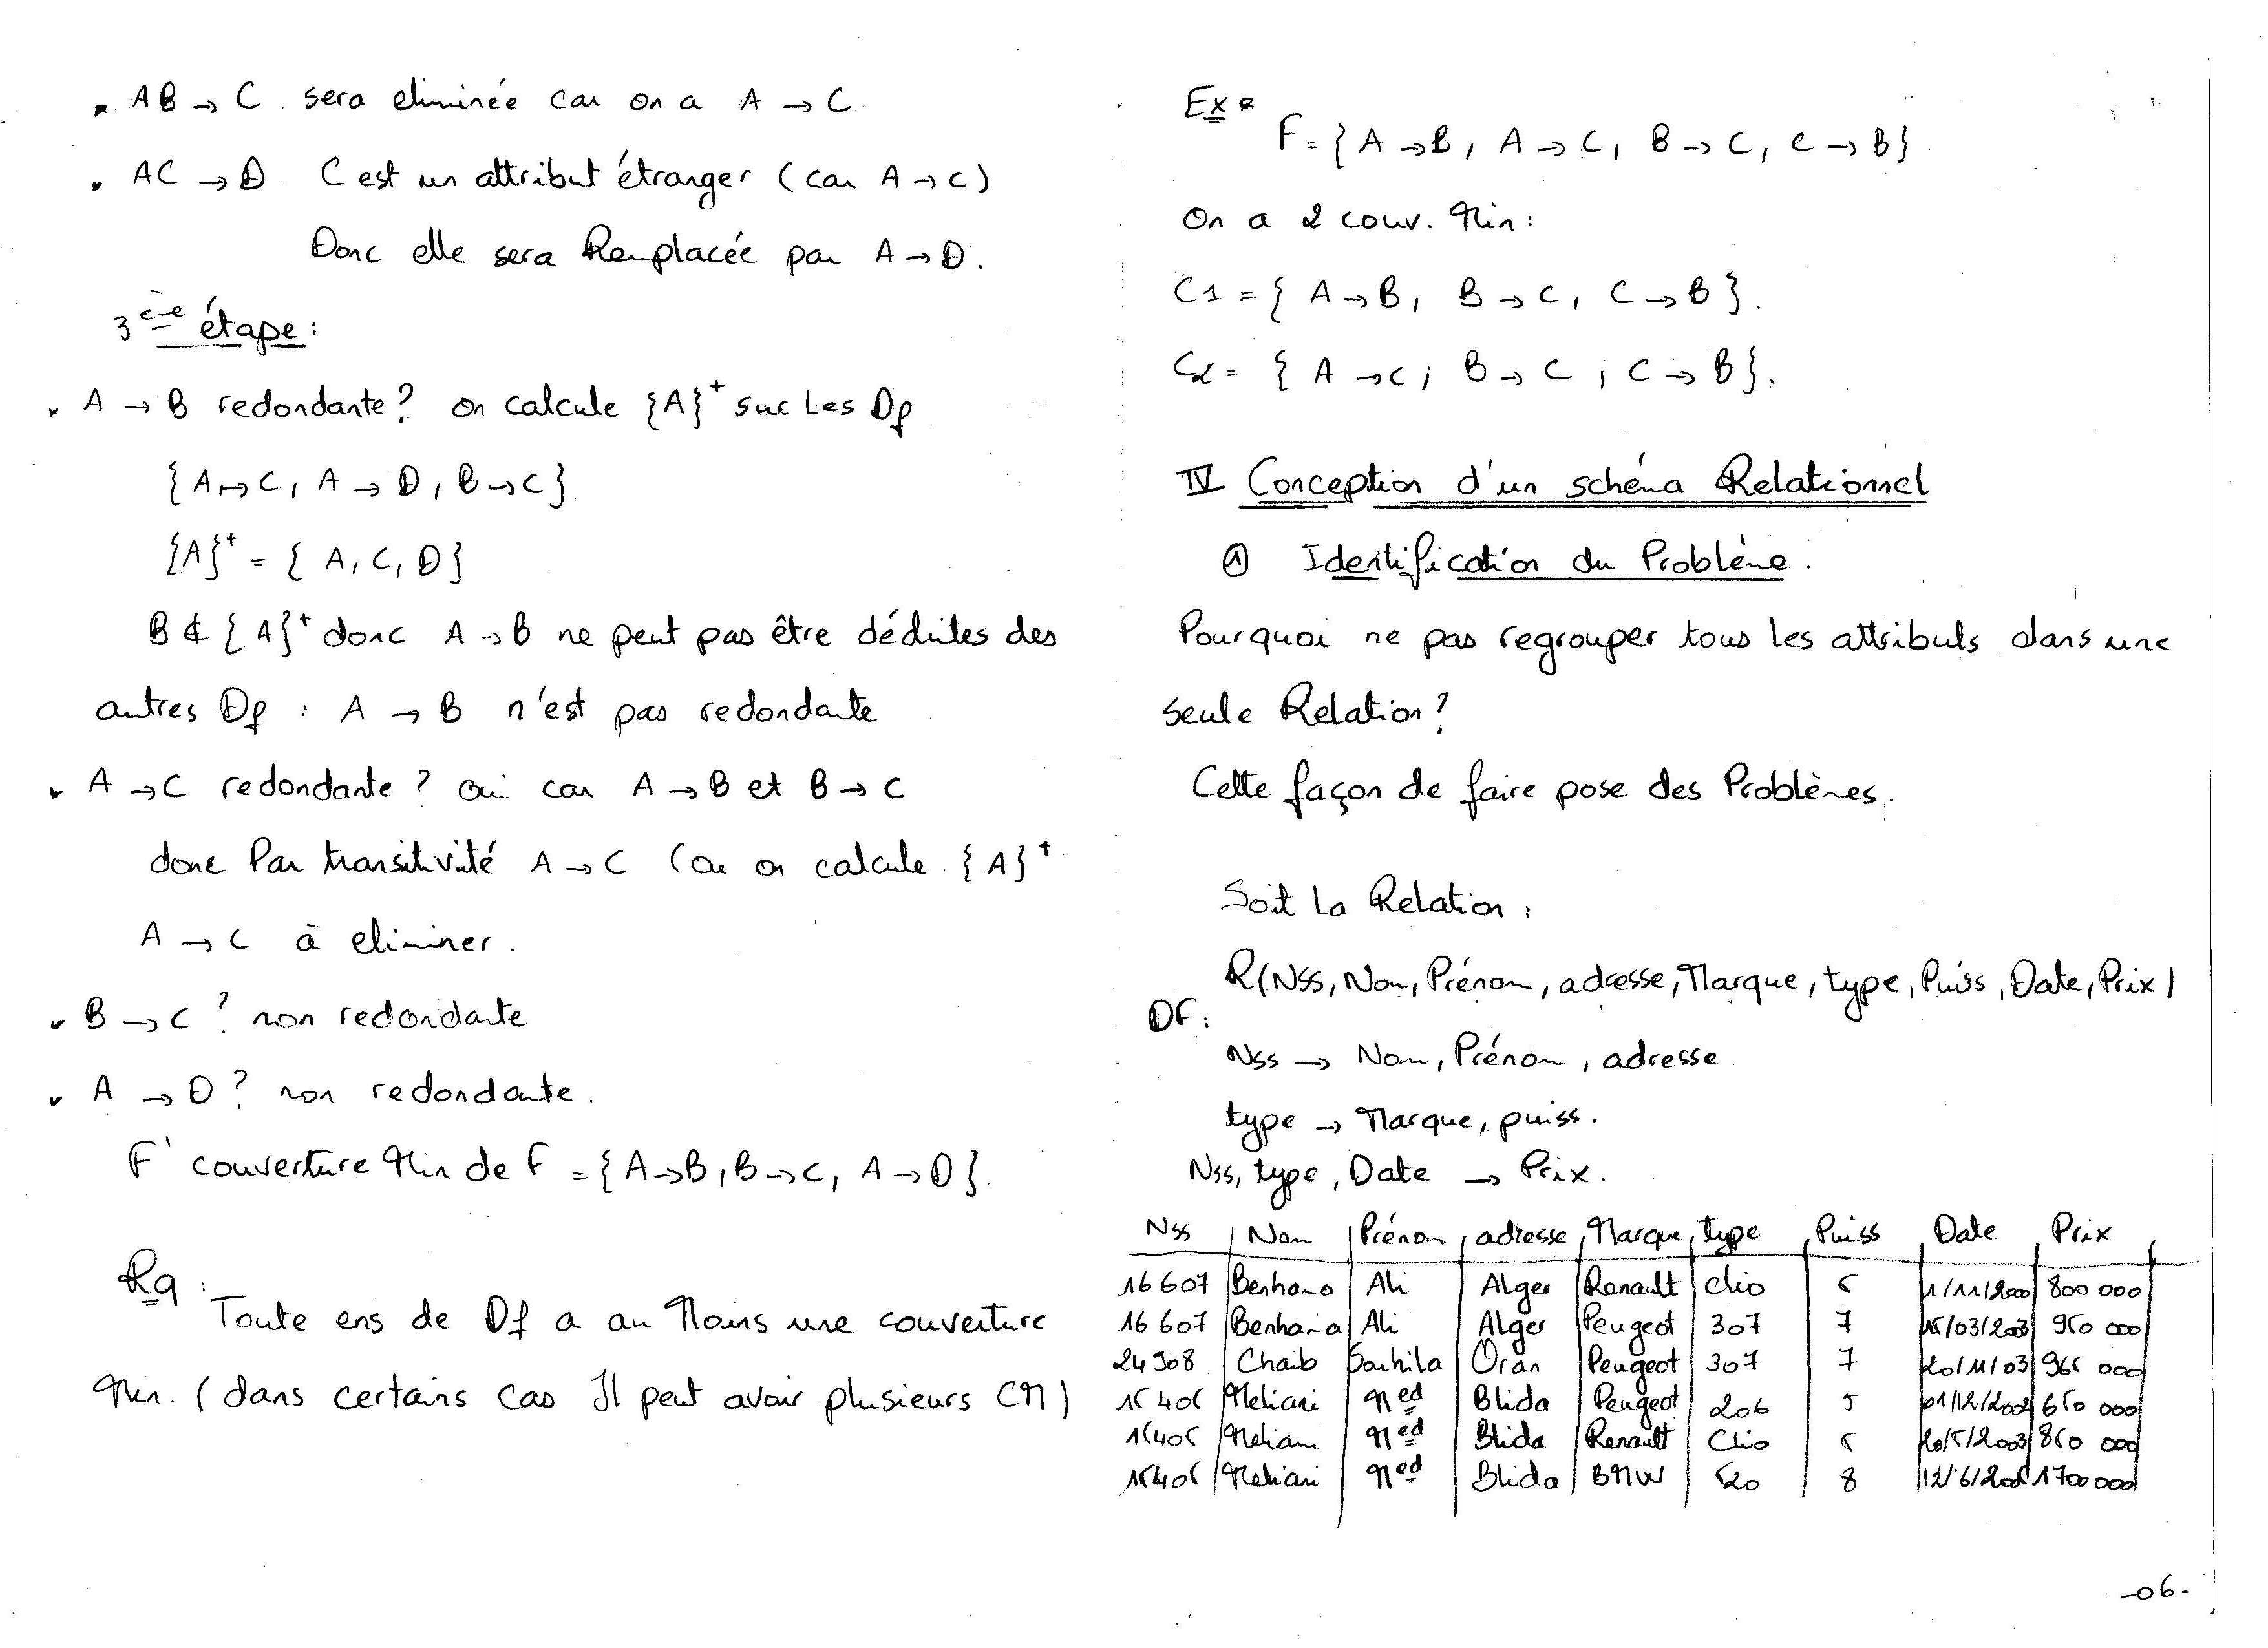 AB → C sera eliminée car on a A → C
AC → D C est un attribut étranger (car A → C)
Donc elle sera Remplacée par A → D.
3ème étape :
A → B redondante? on calcule {A}+ sur Les Df
{A → C, A → D, B → C}
{A}+ = { A, C, D}
B ∉ {A}+ donc A → B ne peut pas être déduites des
autres Df : A → B n'est pas redondante
A → C redondante ? oui car A → B et B → C
donc Par transitivité A → C (ou on calcule {A}+
A → C à eliminer.
B → C ? non redondante
A → D ? non redondante.
F' couverture Min de F = {A → B, B → C, A → D}
Rq :
Toute ens de Df a au Moins une couverture
Min. (dans certains cas Il peut avoir plusieurs CM)
Ex :
F = { A → B, A → C, B → C, C → B}
On a 2 couv. Min :
C1 = { A → B, B → C, C → B}.
C2 = { A → C ; B → C ; C → B}.
IV Conception d'un schéma Relationnel
① Identification du Problème.
Pourquoi ne pas regrouper tous les attributs dans une
seule Relation?
Cette façon de faire pose des Problèmes.
Soit La Relation :
R(NSS, Nom, Prénom, adresse, Marque, type, Puiss, Date, Prix)
DF :
NSS → Nom, Prénom, adresse
type → Marque, puiss.
NSS, type, Date → Prix.
NSS Nom Prénom adresse Marque type Puiss Date Prix
16607 Benhama Ali Alger Renault Clio 5 1/11/2000 800 000
16607 Benhama Ali Alger Peugeot 307 7 15/03/2003 950 000
24908 Chaib Souhila Oran Peugeot 307 7 20/11/03 965 000
15405 Meliani Med Blida Peugeot 206 5 01/12/2002 650 000
15405 Meliani Med Blida Renault Clio 5 20/5/2003 850 000
15405 Meliani Med Blida BMW 520 8 12/6/2005 1700 000
-06-